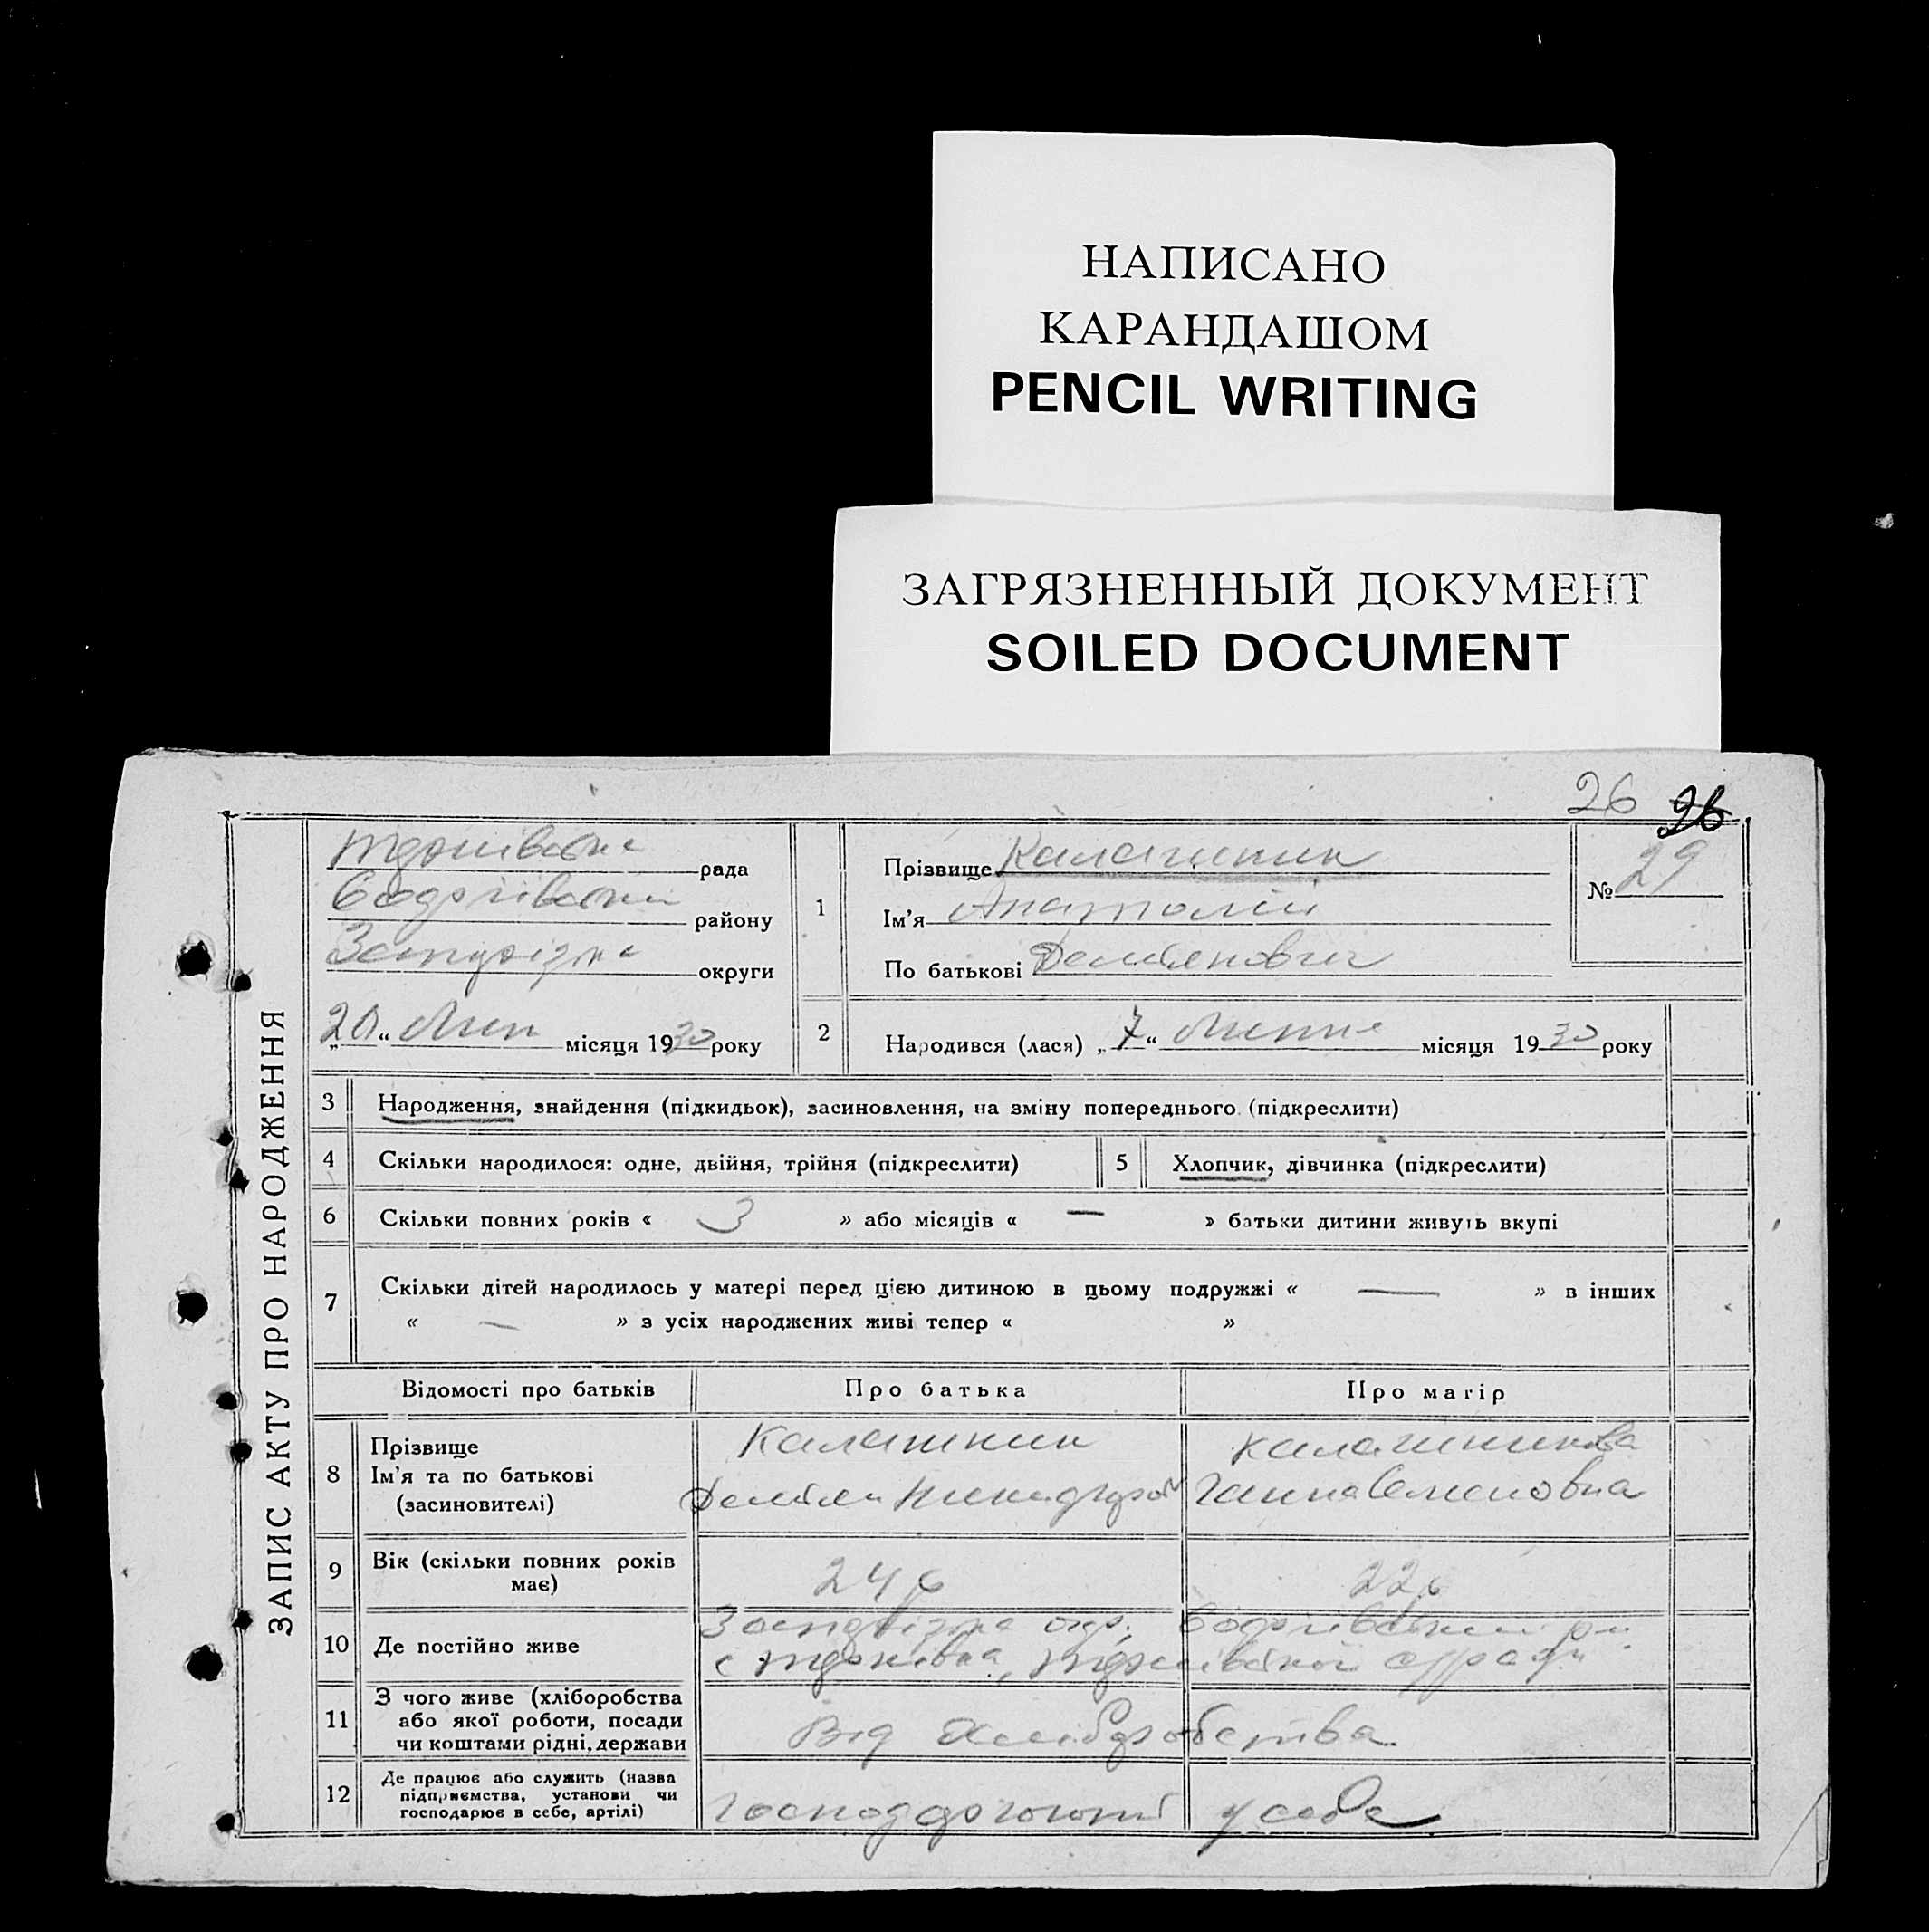 НАПИСАНО
КАРАНДАШОМ
PENCIL WRITING
ЗАГРЯЗНЕННЫЙ ДОКУМЕНТ
SOILED DOCUMENT
26 26
ЗАПИС АКТУ ПРО НАРОДЖЕННЯ
рада
району
округи
„20“ Лип місяця 1930 року
1
Прізвище Калашник
Ім’я Анатолій
По батькові Демянович
№ 29
2
Народився (лася) „7“ Липня місяця 1930 року
3 Народження, знайдення (підкидьок), засиновлення, на зміну попереднього (підкреслити)
4 Скільки народилося: одне, двійня, трійня (підкреслити)
5 Хлопчик, дівчинка (підкреслити)
6 Скільки повних років « 3 » або місяців « — » батьки дитини живуть вкупі
7 Скільки дітей народилось у матері перед цією дитиною в цьому подружжі « — » в інших
« — » з усіх народжених живі тепер « »
Відомості про батьків
Про батька
Про матір
8
Прізвище
Ім’я та по батькові
(засиновителі)
Калашник
Калашникова
Ганна Семеновна
9 Вік (скільки повних років
має)
24р
22р
10 Де постійно живе
11 З чого живе (хліборобства
або якої роботи, посади
чи коштами рідні, держави
Від Хліборобства
12 Де працює або служить (назва
підприємства, установи чи
господарює в себе, артілі)
у себе